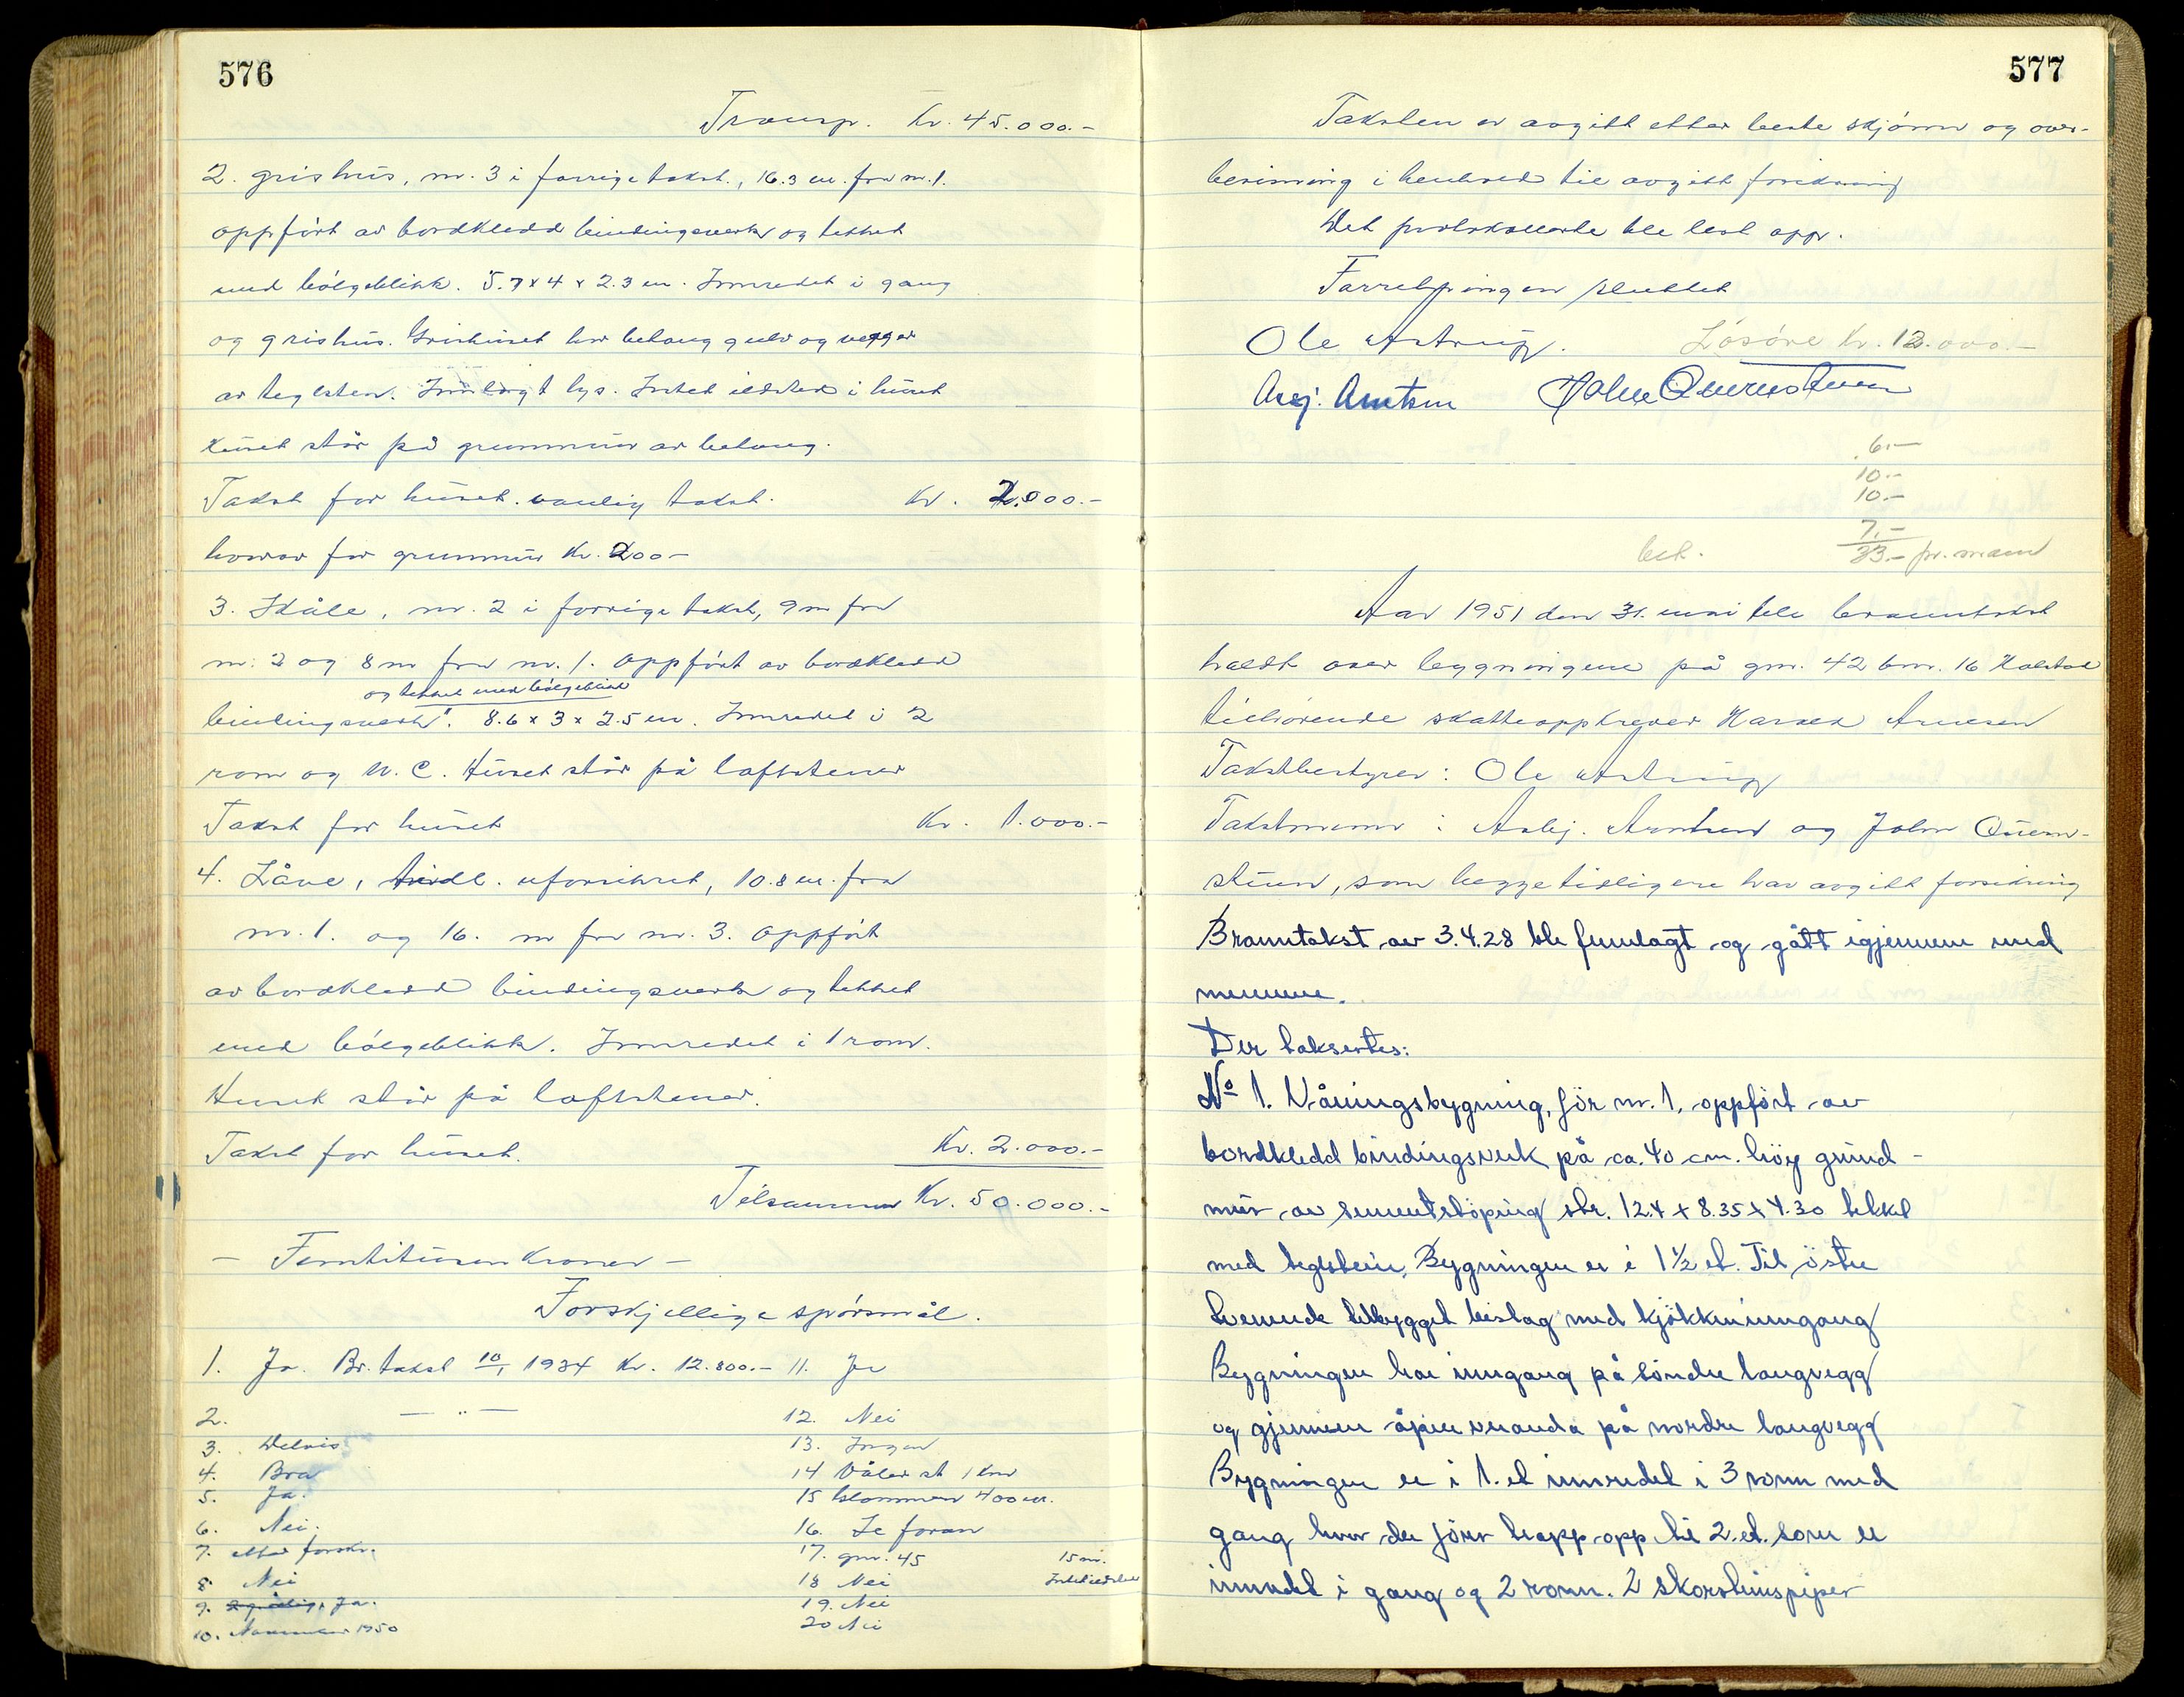 576
Transp. Kr. 45.000.-
2. grishus, nr. 3 i forrige takst., 16.3 m. fra nr. 1.
oppført av bordkledd bindingsverk og tekket
med bølgeblikk. 5.7 x 4 x 2.3 m. Innredet i gang
og grishus. Grishuset har betong gulv og vegger
av teglsten. Innlagt lys. Intet ildsted i huset
Huset står på grunnmur av betong.
Takst for huset. vanlig takst. Kr. 2.000.-
hvorav for grunnmur Kr. 200-
3. Skåle, nr. 2 i forrige takst, 9 m fra
nr. 2 og 8 m fra nr. 1. Oppført av bordkledd
og tekket med bølgeblikk
bindingsverk. 8.6 x 3 x 2.5 m. Innredet i 2
rom og W.C. Huset står på laftstener
Takst for huset Kr. 1.000.-
4. Låve, tidl. uforsikret, 10.8 m. fra
nr. 1. og 16. m fra nr. 3. Oppført
av bordkledd bindingsverk og tekket
med bølgeblikk. Innredet i 1 rom.
Huset står på laftstener.
Takst for huset. Kr. 2.000.-
Tilsammen Kr. 50.000.-
- Femtitusenkroner -
Forskjellige spørsmål.
1. Ja. Br. takst 10/1 1934 Kr. 12.800.- 11. Ja
2. — " — 12. Nei
3. Delvis 13. Ingen
4. Bra 14 Våler st 1 km
5. Ja. 15 Glommen 400 m.
6. Nei. 16. Se foran
7. etter forskr. 17. gnr. 45 15 m.
8. Nei 18 Nei Intet ildsted
9. Ja. 19. Nei
10. November 1950 20 Nei
577
Taksten er avgitt etter beste skjønn og over-
bevisning i henhold til avgitt forsikring
Det protokollerte ble lest opp.
Forretningen sluttet
Ole Astrup. Løsøre Kr. 12.000.-
Asbj. Arntsen John Quernstuen
6.-
10.-
10.-
7.-
bet. 33.- pr. mann
Aar 1951 den 31. mai ble branntakst
holdt over bygningene på gnr. 42 bnr. 16 Holstad
tilhørende skatteoppkrever Harald Arnesen
Takstbestyrer: Ole Astrup
Takstmenn: Asbj. Arntsen og John Quern-
stuen, som begge tidligere har avgitt forsikring
Branntakst av 3.4.28 ble fremlagt og gått igjennem med
mennene.
Der taksertes:
No 1. Våningsbygning, før nr. 1, oppført av
bordkledd bindingsverk på ca. 40 cm. høy grunn-
mur av sementstøping str. 12.4 x 8.35 x 4.30 tekket
med teglstein. Bygningen er i 1 1/2 et. Til østre
tverrende tilbygget bislag med kjøkkeninngang
Bygningen har inngang på søndre langvegg
og gjennem åpen veranda på nordre langvegg
Bygningen er i 1. et innredet i 3 rom med
gang hvor der fører trapp opp til 2. et. som er
innredet i gang og 2 rom. 2 skorsteinspiper